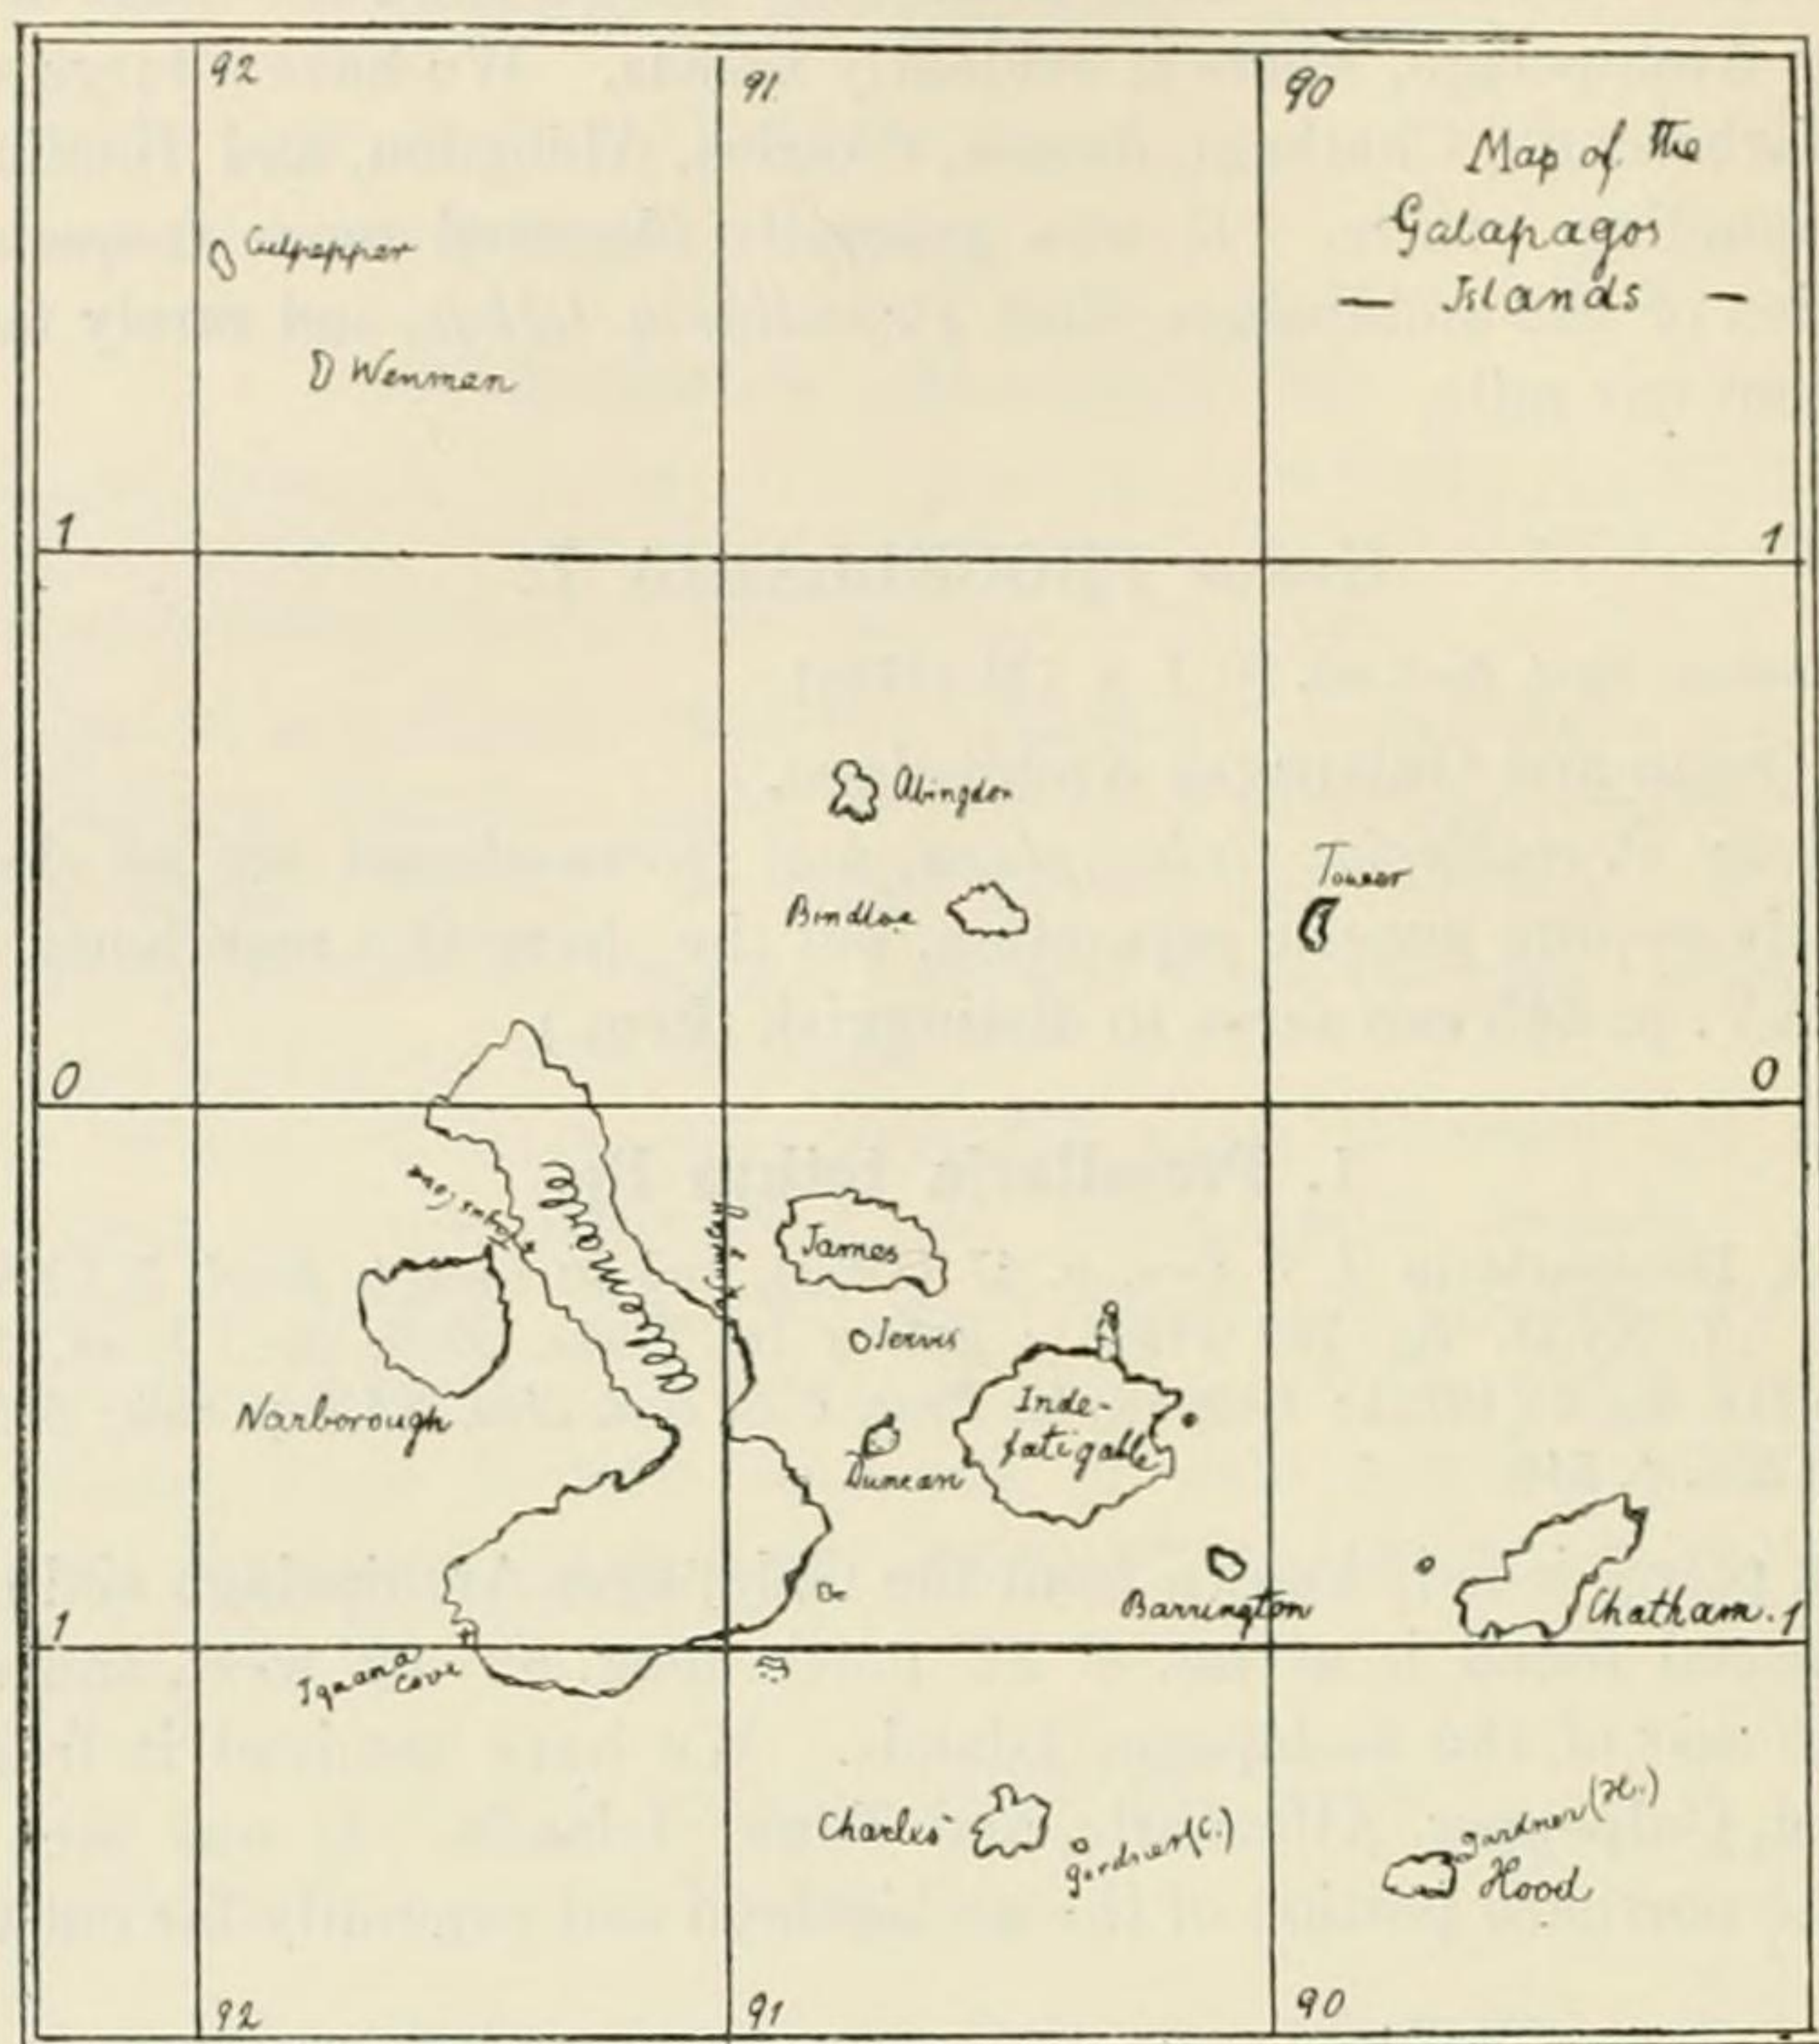 92
91
90
Map of the
Galapagos
— Islands —
Culpepper
Wenman
1
1
Abingdon
Bindloe
Tower
0
0
Tagus Cove
Albemarle
James
Jervis
Narborough
Inde-
fatigable
Duncan
Barrington
Chatham.
1
1
Iguana
Cove
Charles
Gardner (C.)
Gardner (H.)
Hood
92
91
90